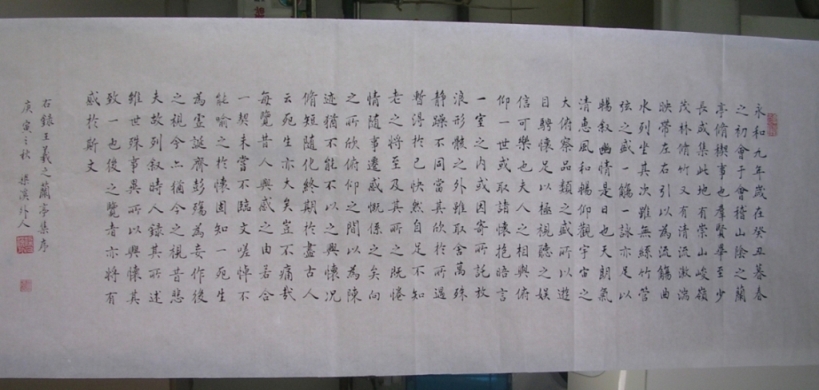 永和九年歲在癸丑暮春
之初會于會稽山陰之蘭
亭脩禊事也羣賢畢至少
長咸集此地有崇山峻嶺
茂林脩竹又有清流激湍
映帶左右引以為流觴曲
水列坐其次雖無絲竹管
弦之盛一觴一詠亦足以
暢敘幽情是日也天朗氣
清惠風和暢仰觀宇宙之
大俯察品類之盛所以遊
目騁懷足以極視聽之娛
信可樂也夫人之相與俯
仰一世或取諸懷抱晤言
一室之內或因寄所託放
浪形骸之外雖取舍萬殊
靜躁不同當其欣於所遇
暫得於己快然自足不知
老之將至及其所之既惓
情隨事遷感慨係之矣向
之所欣俯仰之間以為陳
迹猶不能不以之興懷況
脩短隨化終期於盡古人
云死生亦大矣豈不痛哉
每覽昔人興感之由若合
一契未嘗不臨文嗟悼不
能喻之於懷固知一死生
為虛誕齊彭殤為妄作後
之視今亦猶今之視昔悲
夫故列敘時人錄其所述
雖世殊事異所以興懷其
致一也後之覽者亦將有
感於斯文
右錄王羲之蘭亭集序
庚寅之秋